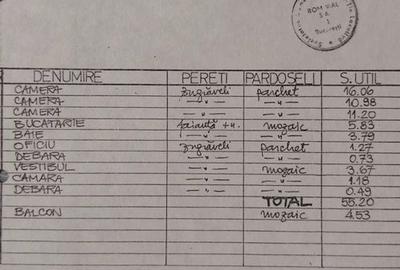 ROMVIAL
S.A.
1
București
DENUMIRE PERETI PARDOSELI S.UTIL
CAMERA zugrăveli parchet 16.06
CAMERA —"— —"— 10.98
CAMERA —"— —"— 11.20
BUCATARIE faianță +u. mozaic 5.83
BAIE —"— —"— 3.79
OFICIU zugrăveli parchet 1.27
DEBARA —"— —"— 0.73
VESTIBUL —"— mozaic 3.67
CAMARA —"— —"— 1.18
DEBARA —"— —"— 0.49
TOTAL 55.20
BALCON mozaic 4.53